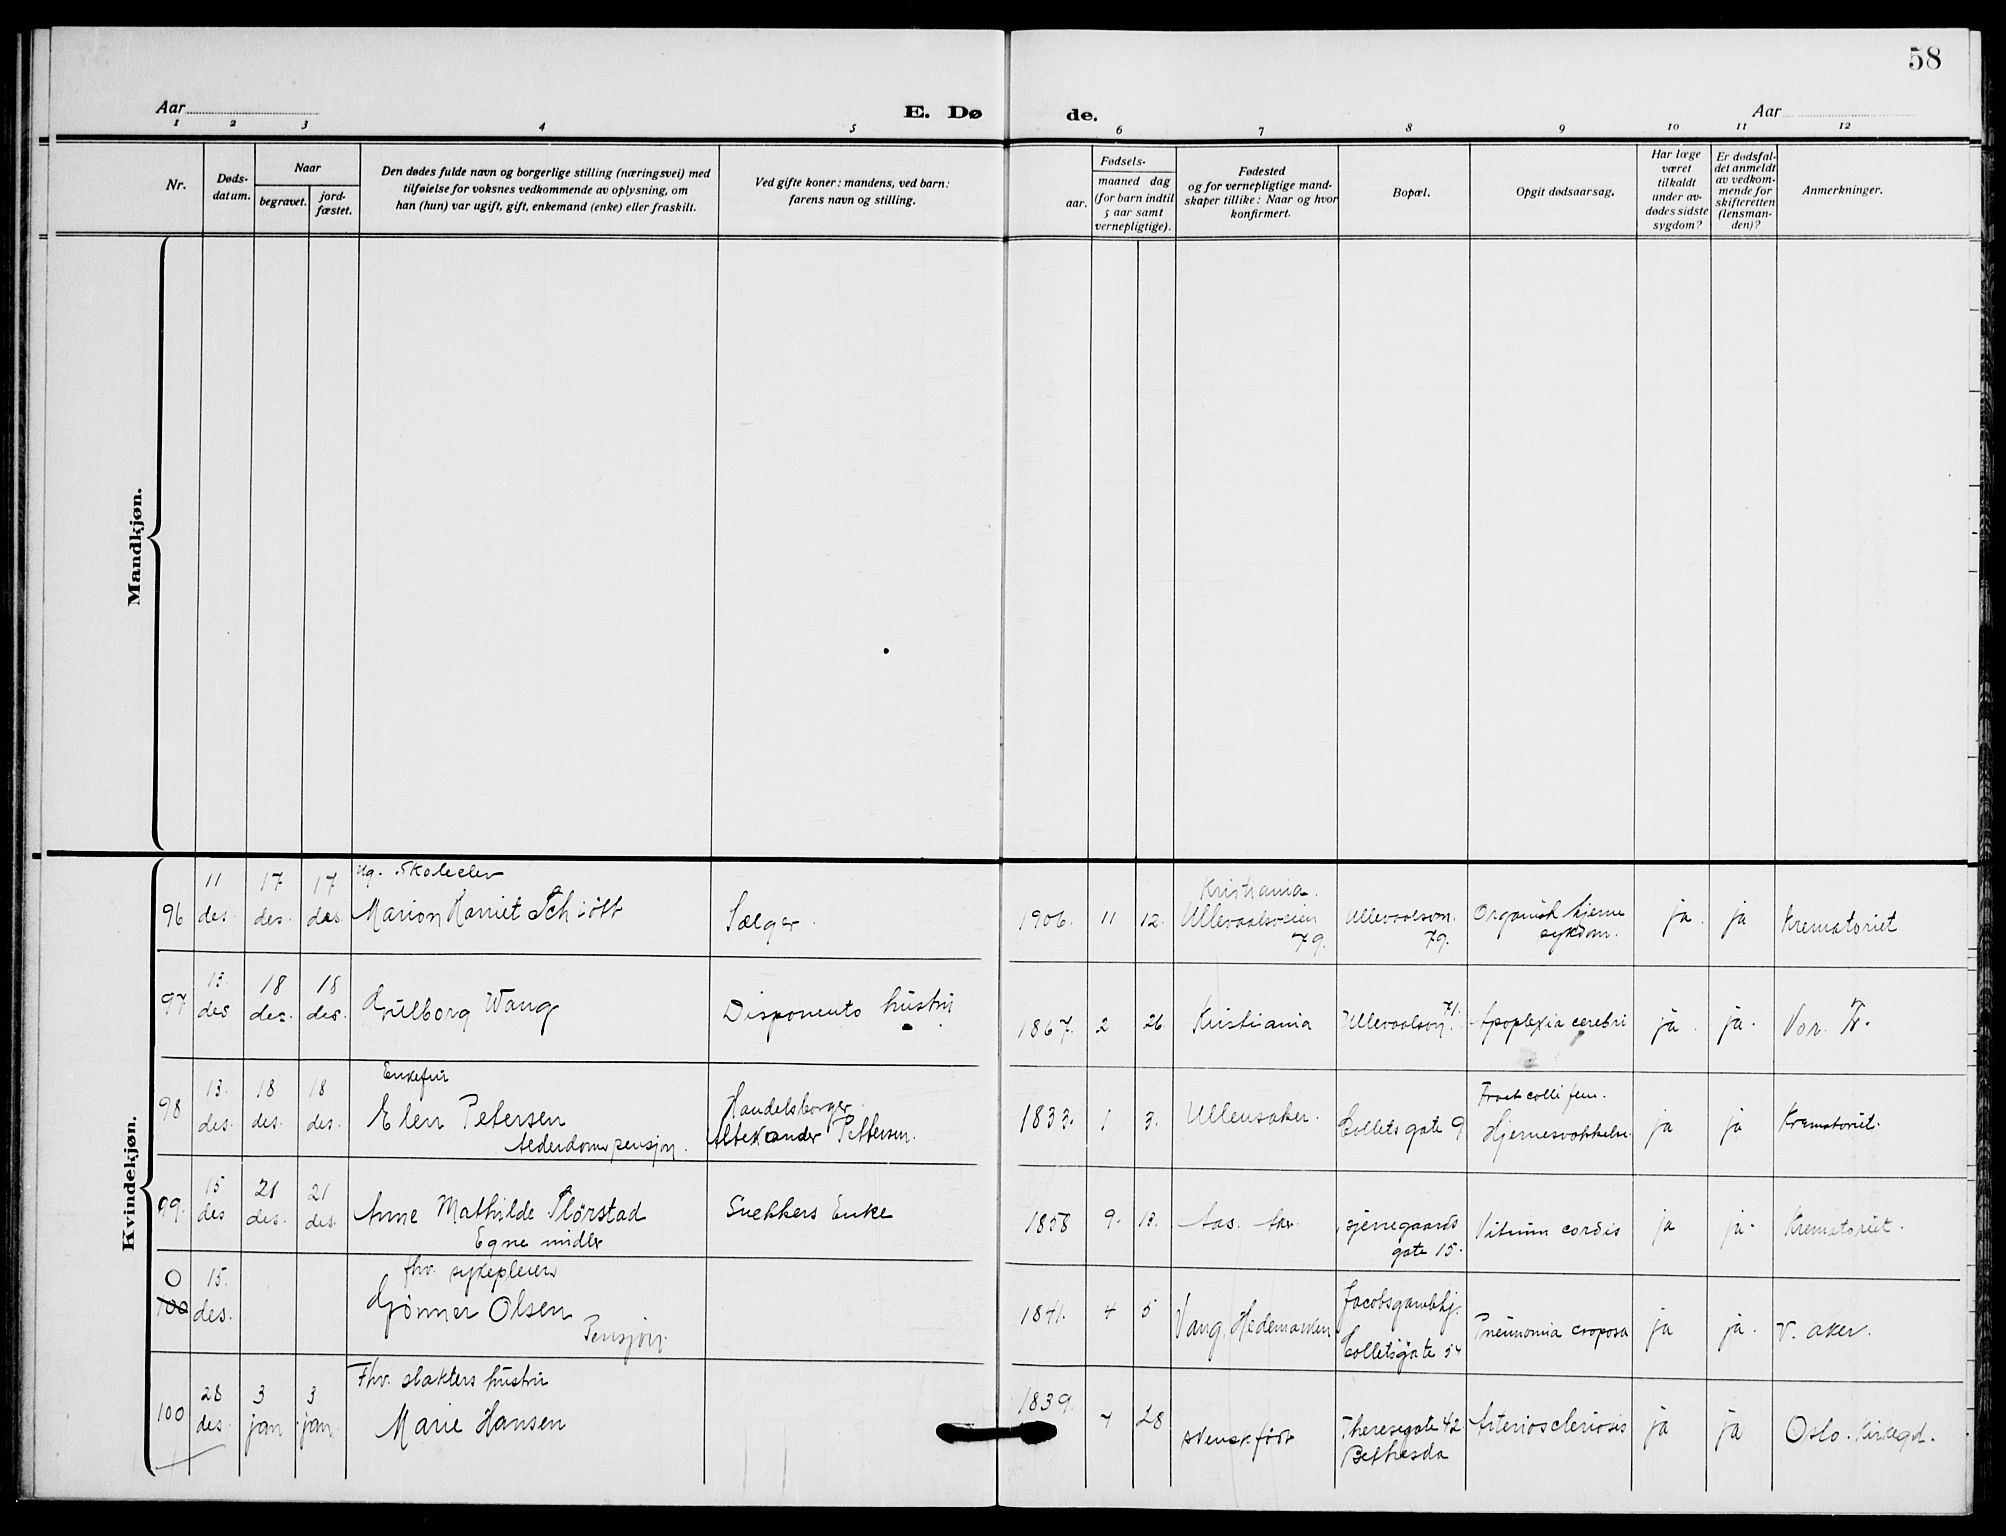 58
Aar
E. Dø
de.
Aar
1 2 3 4 5 6 7 8 9 10 11 12
Nr.
Døds-
datum.
Naar
begravet.
jord-
fæstet.
Den dødes fulde navn og borgerlige stilling (næringsvei) med
tilføielse for voksnes vedkommende av oplysning, om
han (hun) var ugift, gift, enkemand (enke) eller fraskilt.
Ved gifte koner: mandens, ved barn:
farens navn og stilling.
Fødsels-
aar.
maaned dag
(for barn indtil
5 aar samt
vernepligtige).
Fødested
og for vernepligtige mand-
skaper tillike: Naar og hvor
konfirmert.
Bopæl.
Opgit dødsaarsag.
Har læge
været
tilkaldt
under av-
dødes sidste
sygdom?
Er dødsfal-
det anmeldt
av vedkom-
mende for
skifteretten
(lensman-
den)?
Anmerkninger.
Mandkjøn.
Kvindekjøn.
96
11
des.
17
des.
17
des.
Ug. Skoleelev
Marion Harriet Schiött
Sælger.
1906. 11 12.
Kristiania.
Ullevaalsveien
79.
Ullevaalsvn.
79.
Organisk hjerne
sykdom.
ja. ja Krematoriet
97
13.
des
18
des.
18
des.
Gulborg Wang
Disponents hustru
1867. 2 26 Kristiania
Ullevaalsvn 71.
Apoplexia cerebri
ja. ja. Vor. Fr.
98
13.
des.
18
des.
18
des.
Enkefru
Elen Petersen
Alderdomspensjon.
Handelsborger
Pettersen.
1833. 1 3. Ullensaker.
Collets gate 9
Fract colli fem.
ja ja Krematoriet.
99.
15.
des
21
des.
21
des.
Anne Mathilde
Egne midler
Snekkers Enke
1858 9. 13. Aas. Aker
Bjerregaards
gate 15.
Vitium cordis
ja ja. Krematoriet.
0
100
15.
des.
fhv. sykepleier
Gjønner Olsen
Pensjon.
1841. 4 5 Vang, Hedemarken
Colletsgate 54
Pneumonia croposa
ja ja. V. aker.
100
28
des.
3
jan
3
jan
Fhv. slakters hustru
Marie Hansen
1839. 7 28
svensk født
Theresegate 42
Bethesda
Arteriosclerosis
ja ja Oslo. kirkegd.